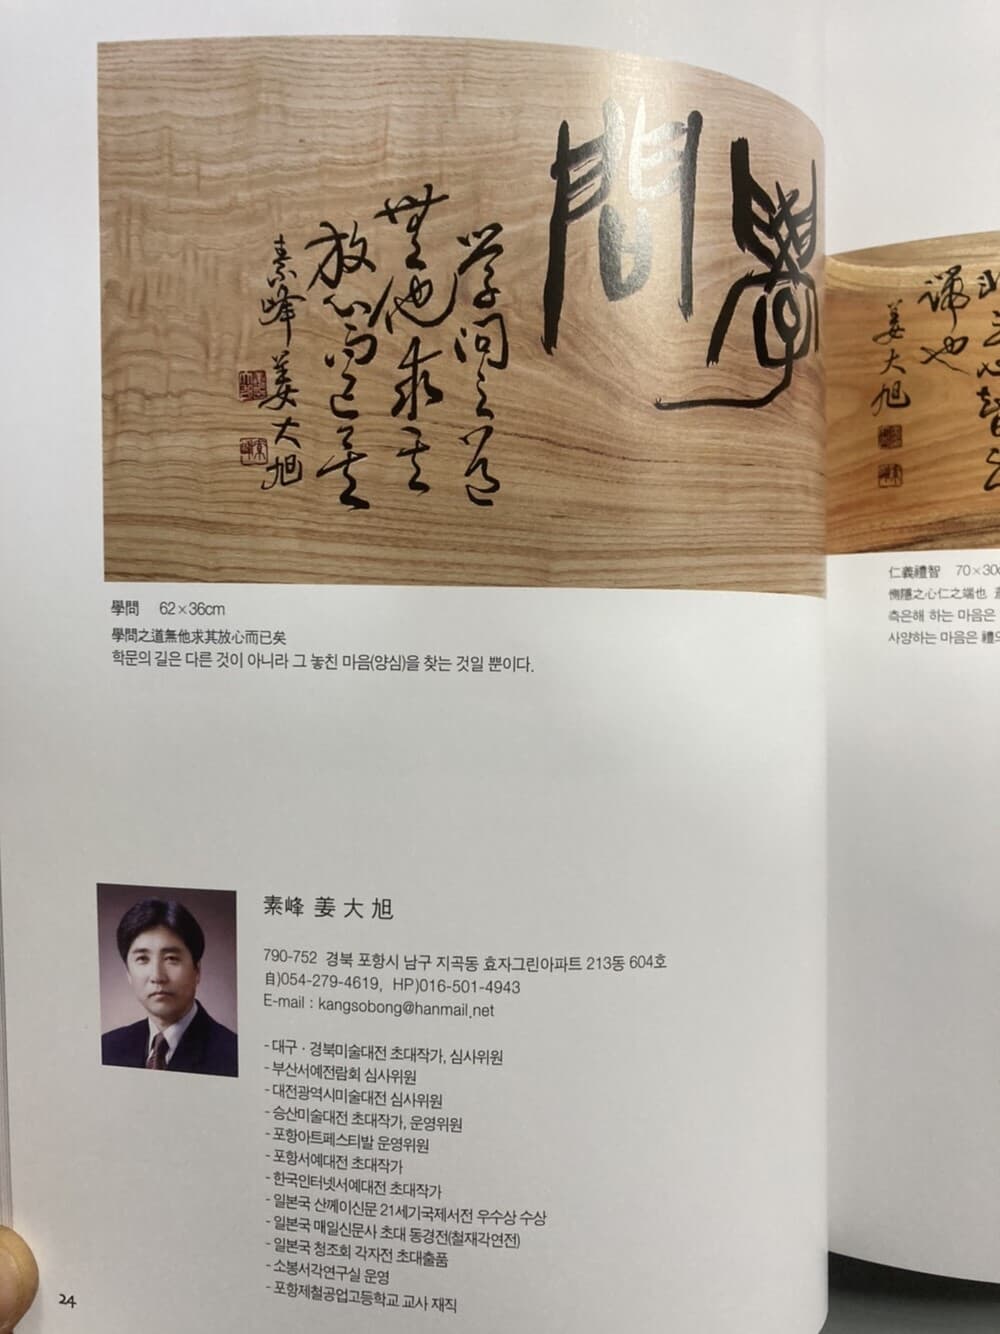 學問
學問之道
無他求其
放心而已矣
素峰 姜大旭
學問 62×36cm
學問之道無他求其放心而已矣
학문의 길은 다른 것이 아니라 그 놓친 마음(양심)을 찾는 것일 뿐이다.
諦也
姜大旭
仁義禮智 70×30c
惻隱之心仁之端也
측은해 하는 마음은
사양하는 마음은 禮의
素峰 姜大旭
790-752 경북 포항시 남구 지곡동 효자그린아파트 213동 604호
自)054-279-4619, HP)016-501-4943
E-mail : kangsobong@hanmail.net
- 대구 · 경북미술대전 초대작가, 심사위원
- 부산서예전람회 심사위원
- 대전광역시미술대전 심사위원
- 승산미술대전 초대작가, 운영위원
- 포항아트페스티발 운영위원
- 포항서예대전 초대작가
- 한국인터넷서예대전 초대작가
- 일본국 산께이신문 21세기국제서전 우수상 수상
- 일본국 매일신문사 초대 동경전(철재각연전)
- 일본국 청조회 각자전 초대출품
- 소봉서각연구실 운영
- 포항제철공업고등학교 교사 재직
24